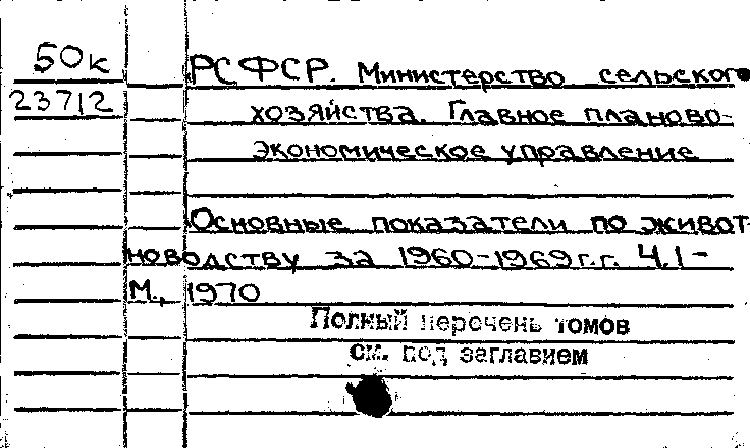 50к
23712
РСФСР. Министерство сельского
хозяйства. Главное планово-
экономическое управление
Основные показатели по живот
новодству за 1960-1969г.г. Ч.1-
М., 1970
Полный перечень томов
см. под заглавием